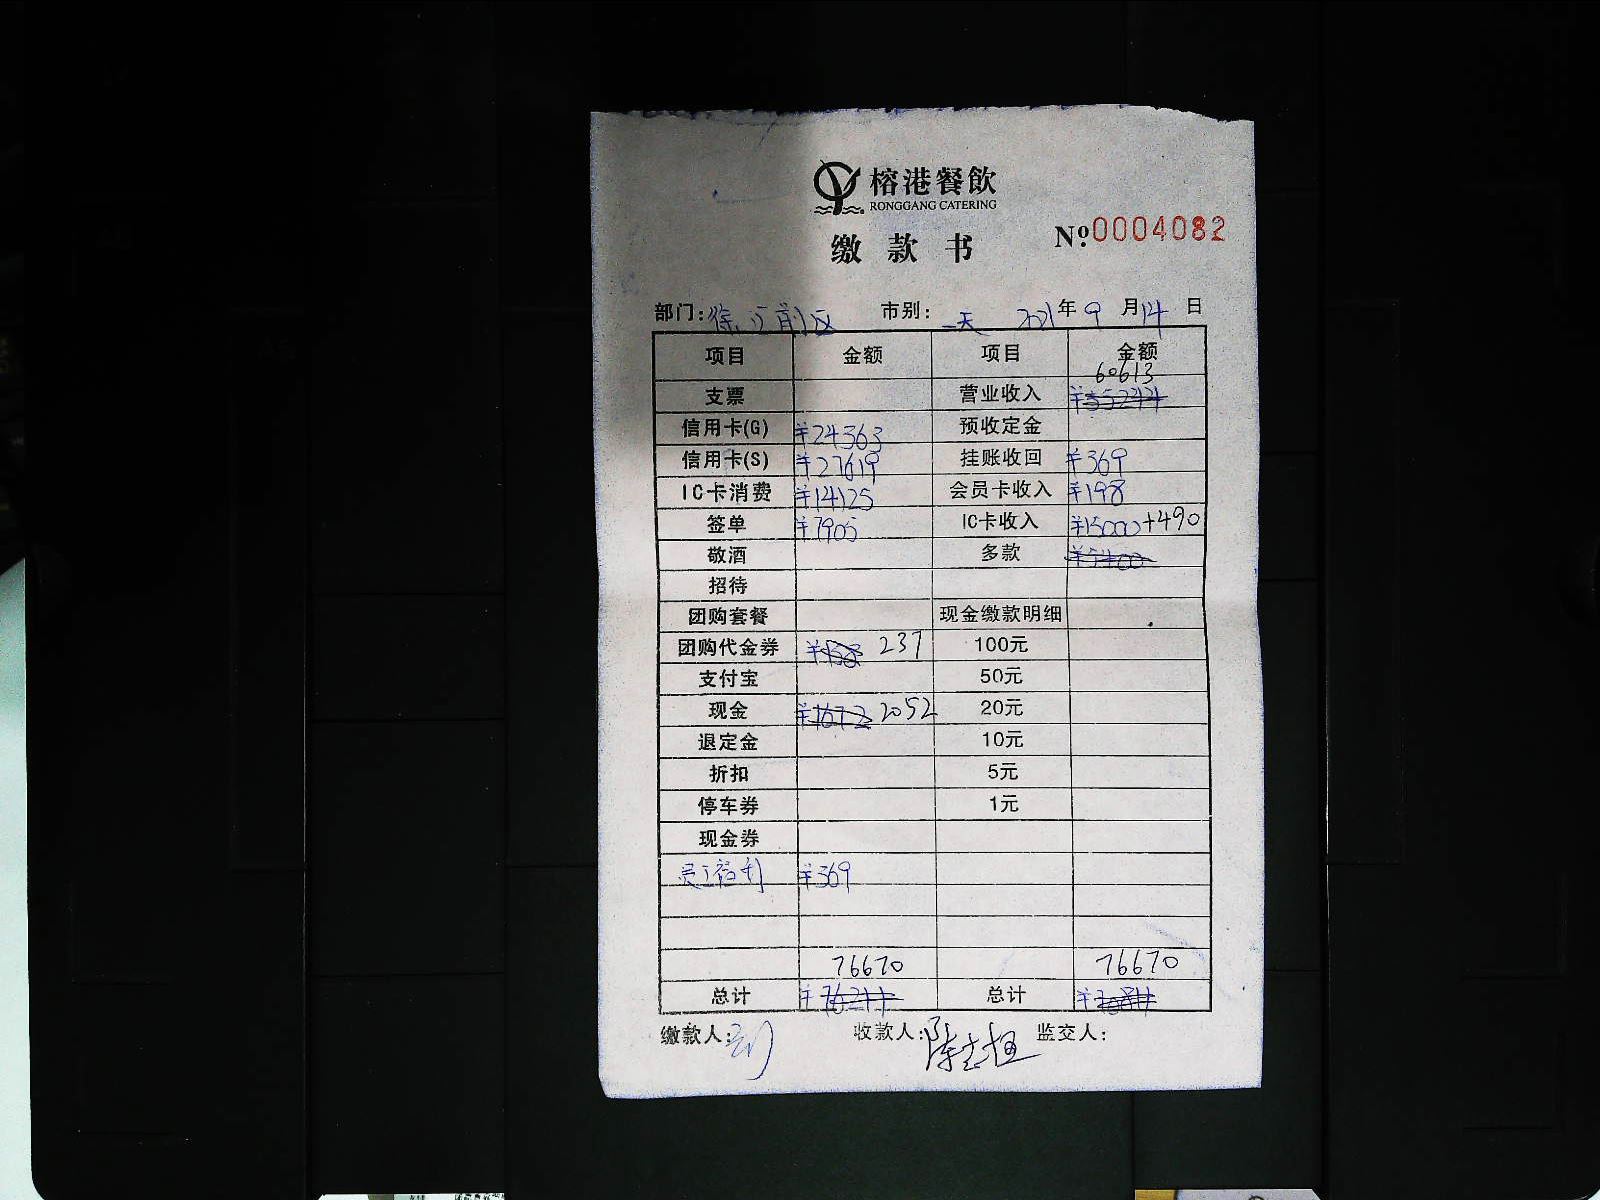 榕港餐飲
RONGGANG CATERING
缴款书 №0004082
部门: 前区 市别: 一天 2021年9月14日
项目 金额 项目 金额
60613
支票 营业收入
信用卡(G) ¥24363 预收定金
信用卡(S) ¥27619 挂账收回 ¥369
IC卡消费 ¥14125 会员卡收入 ¥198
签单 ¥7905 IC卡收入 ¥15000+490
敬酒 多款 ¥5400
招待
团购套餐 现金缴款明细
团购代金券 237 100元
支付宝 50元
现金 2052 20元
退定金 10元
折扣 5元
停车券 1元
现金券
员工福利 ¥369
76670 76670
总计 总计
缴款人: 收款人: 监交人: